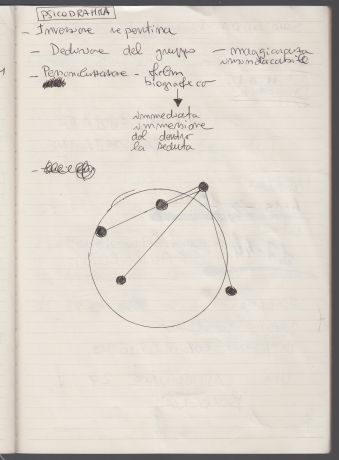 PSICODRAMMA
- Inversione repentina
- Deduzione del gruppo - maggioranza
insindacabile
- - film
biografico
immediata
immersione
dal dentro
la seduta